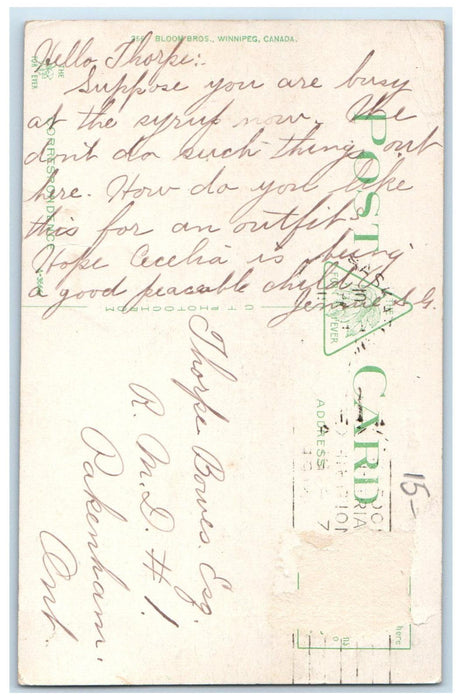 258 BLOOM BROS., WINNIPEG, CANADA.
Hello Thorpe:
Suppose you are busy
at the syrup now. We
don't do such things out
here. How do you like
this for an outfit.
Hope Cecelia is being
a good peacable child.
Jennie S.G.
POST CARD
CORRESPONDENCE
C T PHOTOCHROM
ADDRESS
Thorpe Bowes Esq.
R. M. D. # 1.
Pakenham.
Ont.
15-
here